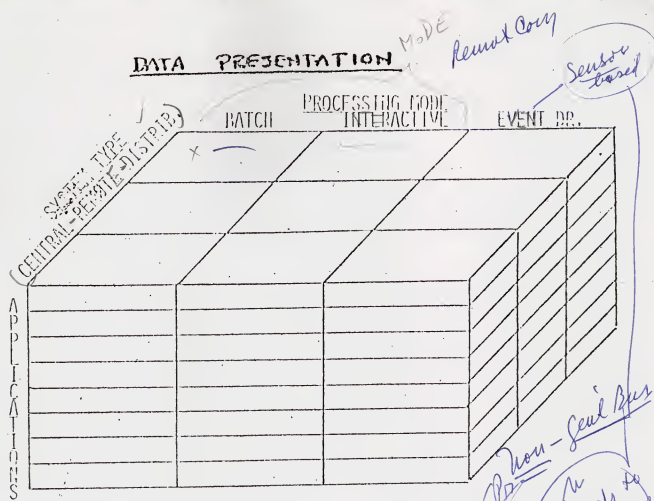 DATA PRESENTATION
MODE
Sensor
based
PROCESSING MODE
BATCH INTERACTIVE EVENT DR.
SYSTEM TYPE
(CENTRAL-REMOTE-DISTRIB.)
X
APPLICATIONS
non-Gen'l Bus